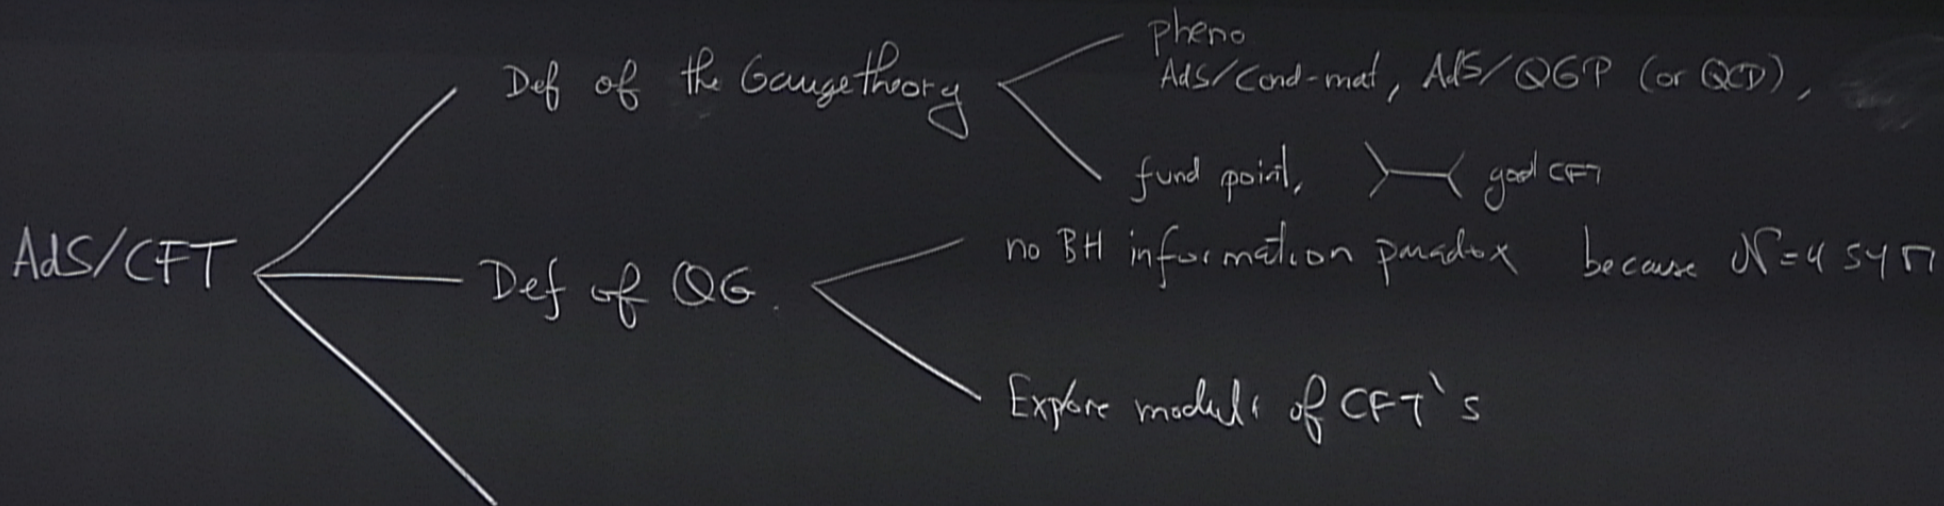 pheno
Def of the Gauge theory
AdS/Cond-mat, AdS/QGP (or QCD),
fund point, good CFT
AdS/CFT
no BH information paradox because N=4 SYM
Def of QG.
Explore moduli of CFT's